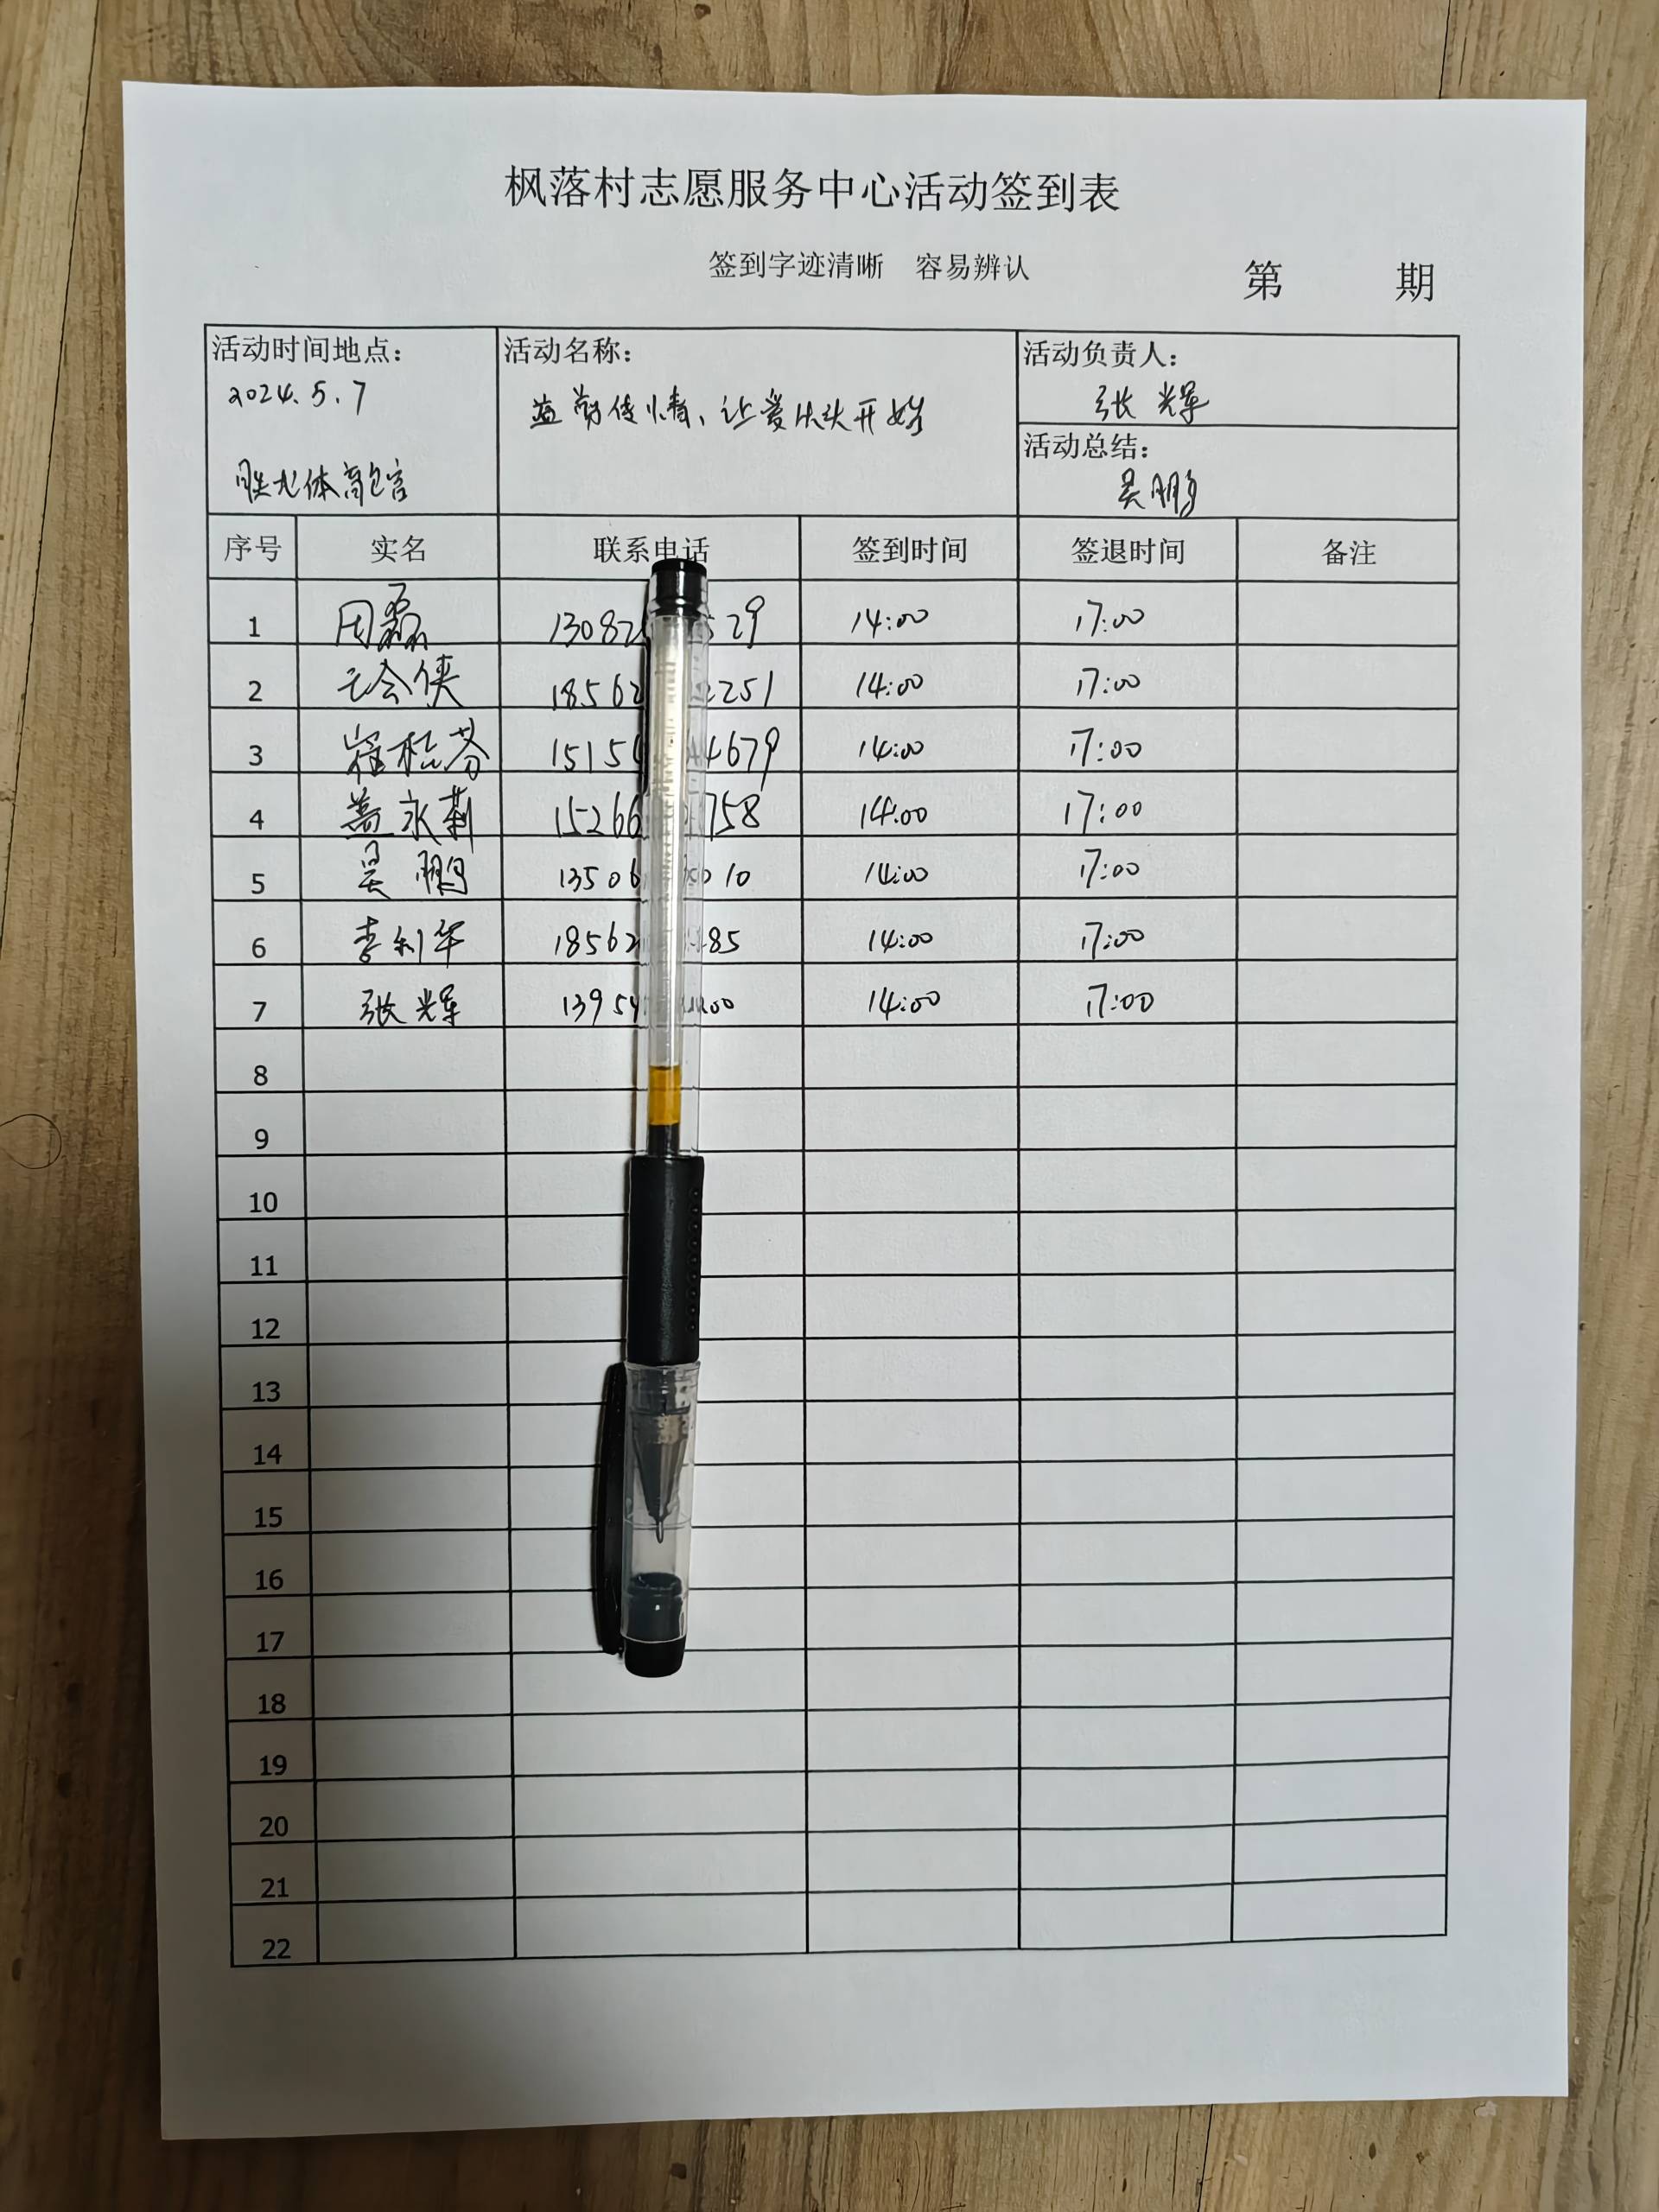 枫落村志愿服务中心活动签到表
签到字迹清晰 容易辨认
第 期
活动时间地点：
2024.5.7
活动名称：
益剪传情、让爱从头开始
活动负责人：
张辉
活动总结：
吴鹏
序号 实名 联系电话 签到时间 签退时间 备注
1 周磊 1308 29 14:00 17:00
2 会侠 1856 251 14:00 17:00
3 崔桂芬 1515 4679 14:00 17:00
4 盖永莉 15266 758 14:00 17:00
5 吴鹏 1350 10 14:00 17:00
6 李利华 1856 85 14:00 17:00
7 张辉 1395 00 14:00 17:00
8
9
10
11
12
13
14
15
16
17
18
19
20
21
22